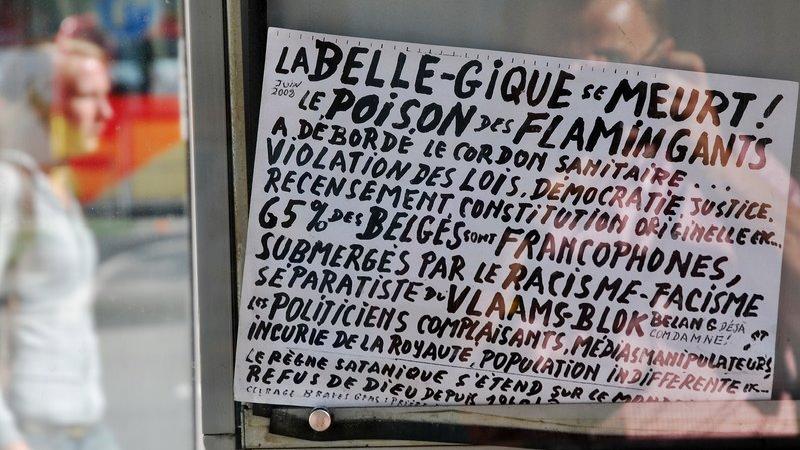 LA BELLE-GiQUE se MEURT!
JUIN 2008
LE POISON DES FLAMINGANTS
A DÉBORDÉ LE CORDON SANITAIRE...
VIOLATION DES LOIS, DÉMOCRATIE, JUSTICE.
RECENSEMENT, CONSTITUTION ORIGINELLE etc...
65% DES BELGES SONT FRANCOPHONES,
SUBMERGÉS PAR LE RACISME-FACISME
SÉPARATISTE DU VLAAMS-BLOK BELANG DÉJÀ CONDAMNÉ! ET
les POLITICIENS COMPLAISANTS, MÉDIAS MANIPULATEURS,
INCURIE DE LA ROYAUTÉ, POPULATION INDIFFÉRENTE etc...
LE RÈGNE SATANIQUE S'ÉTEND SUR LE
REFUS DE DIEU DEPUIS
COURAGE BRAVES GENS: